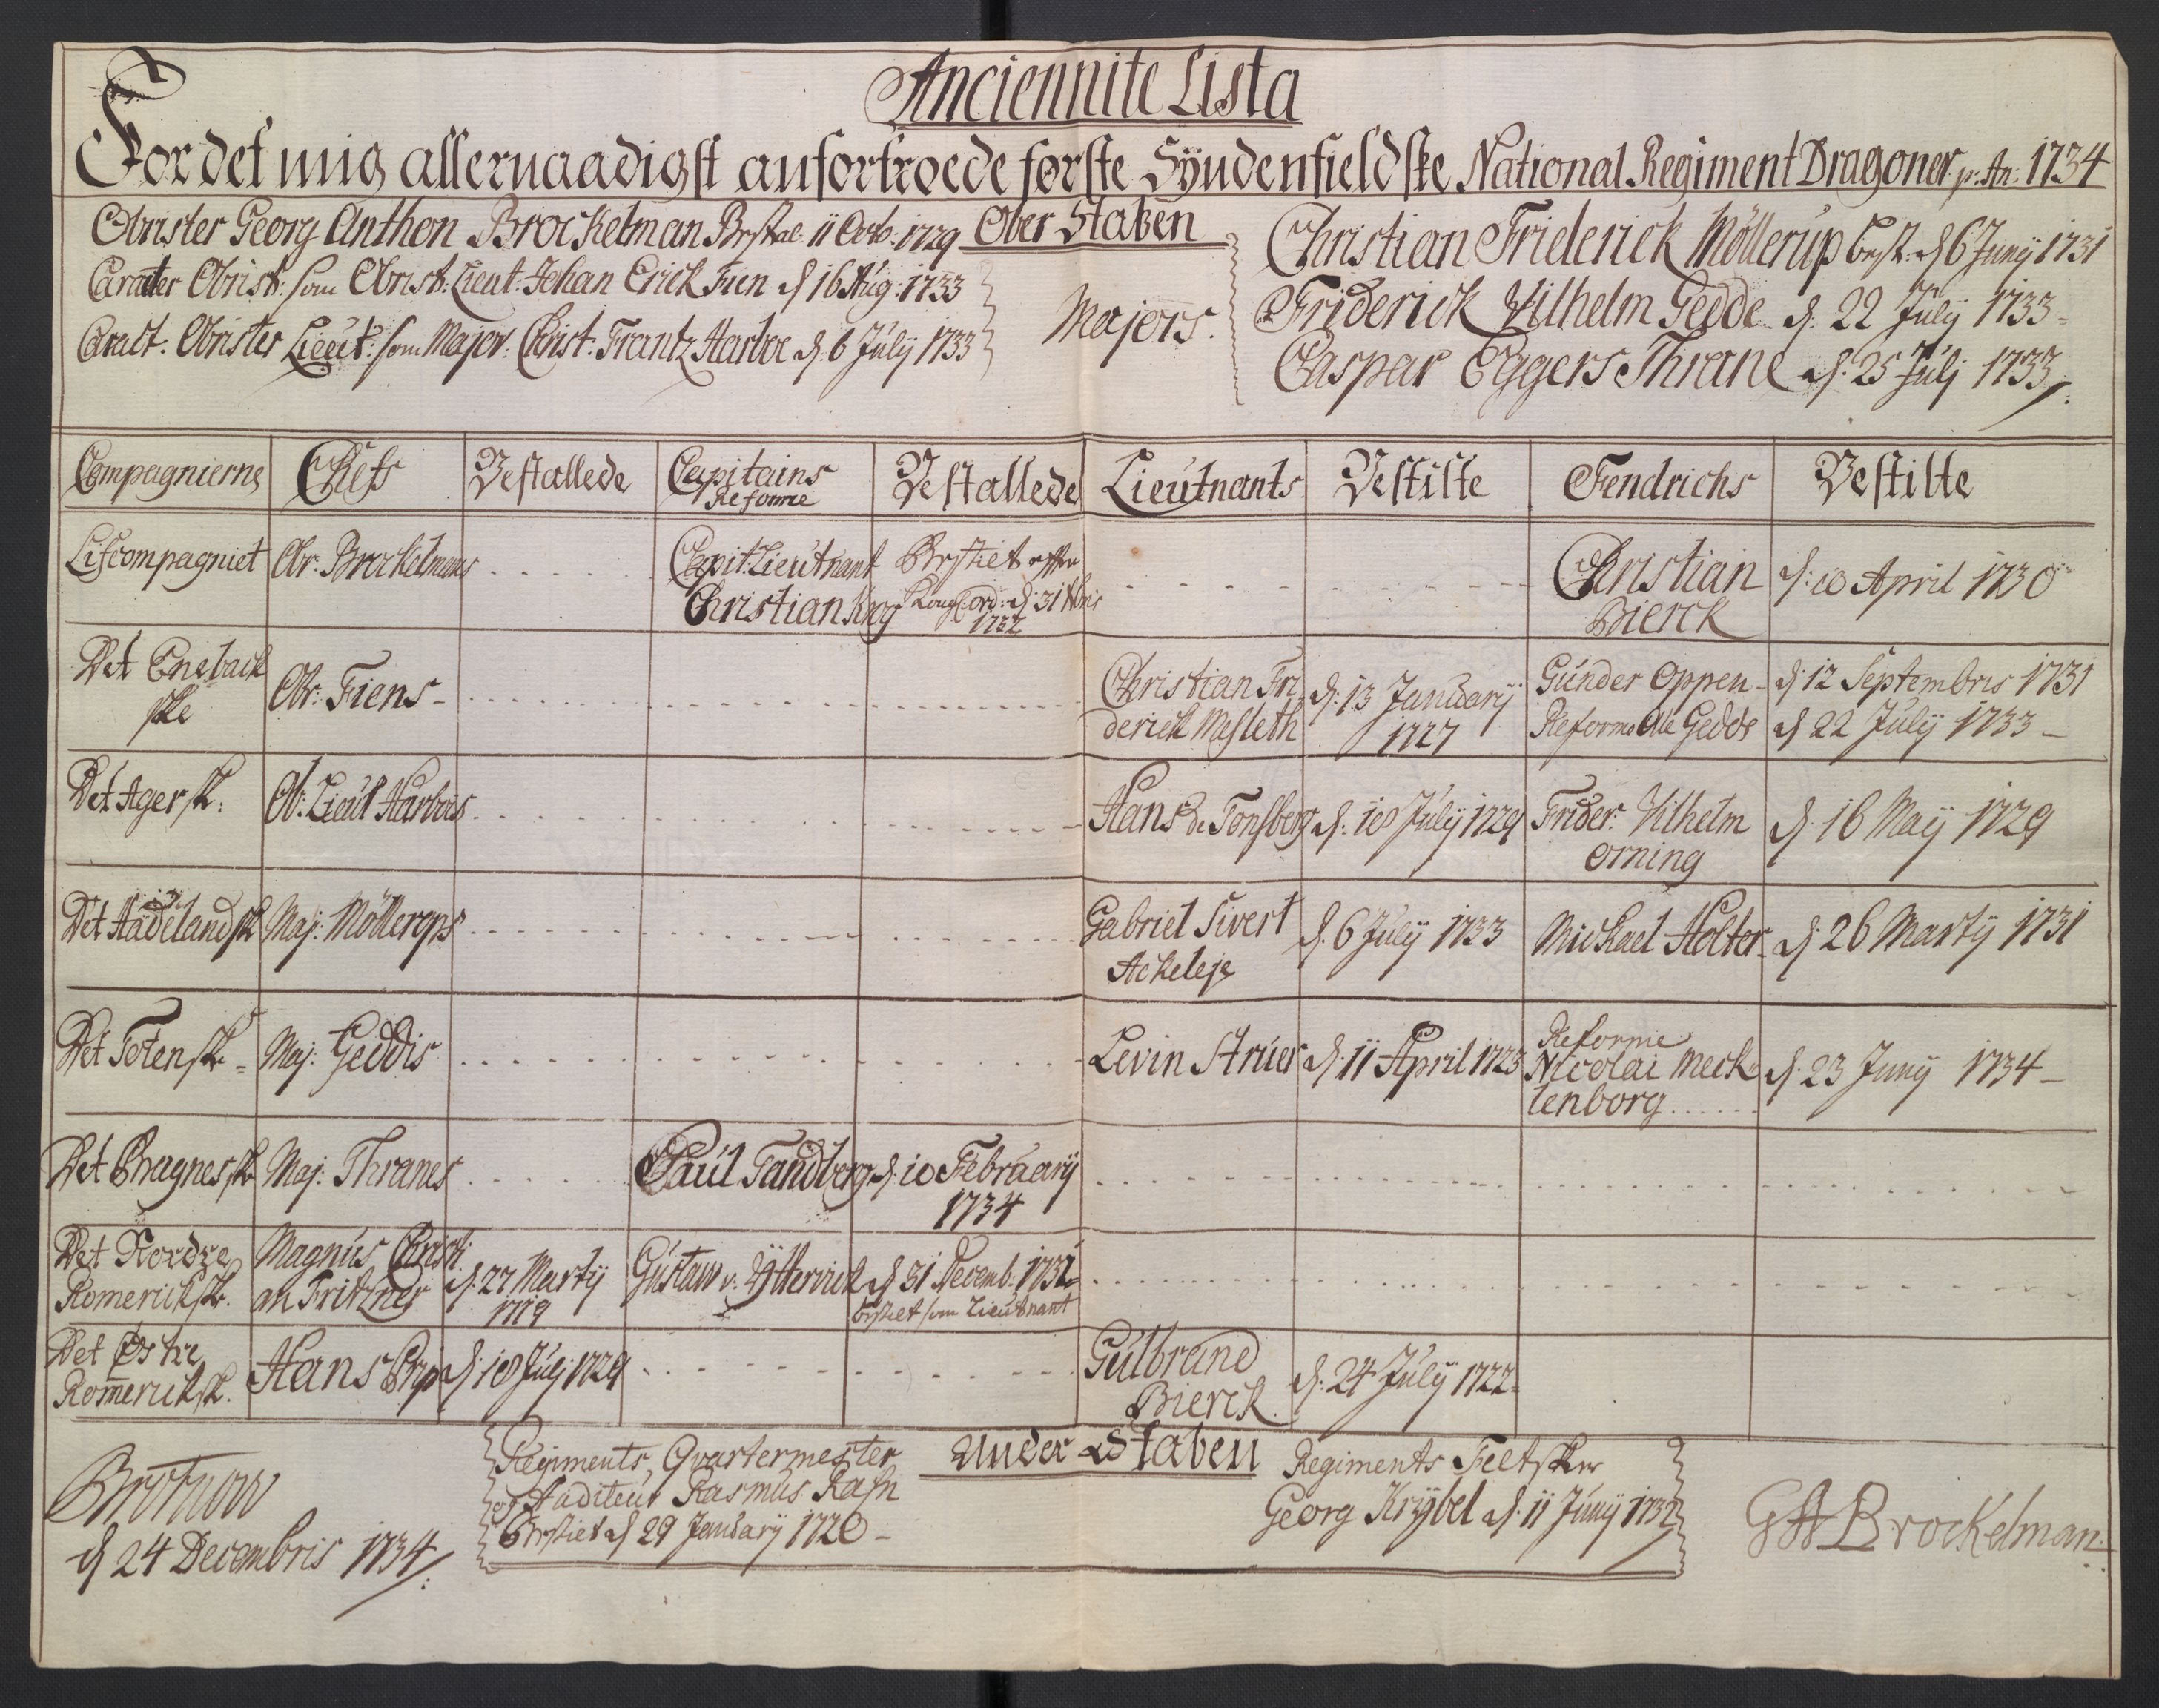 Anciennite Lista
For det mig allernaadigst anfortroede første Syndenfieldske National Regiment Dragoner p: An: 1734
Ober Staben
Obrister Georg Anthon Brockelman Bestal: 11 Octb: 1729
Caracter Obrist: som Obrist: Lieut: Johan Erick Fien d 16 Aug: 1733
Caract: Obrister Lieut: som Major: Christ: Frantz Harboe d: 6 Julÿ 1733
Majors.
Christian Friderick Möllerup best: d 6 Junÿ 1731
Friderick Wilhelm Gedde d: 22 Julÿ 1733 -
Caspar Eggers Thrane d: 25 Julj 1733
Compagnierne Chefs Bestallede Capitains Reforme Bestallede Lieutnants Bestilte Fendrichs Bestilte
Lifcompagniet Obr: Brockelmans Capit: Lieutnant Christian Krog Bestilet efter Kongl: ord: d: 31 Xbris 1732 Christian Bierck d: 10 April 1730
Det Enebackske Obr: Fiens - Christian Friderick Mesleth d: 13 Januarÿ 1727 Gunder Oppen - d: 12 Septembris 1731
Reforme Ole Gedde d 22 Julÿ 1733 -
Det Agersk: Ob: Lieut Harbois Hans de Tonsberg d: 18 Julÿ 1729 Frider: Wilhelm Orning d: 16 Maÿ 1729
Det Hadelandsk Maj: Möllerups Gabriel Sivert Ackeleje d: 6 Julÿ 1733 Michael Holter d: 26 Martÿ 1731
Det Totensk - Maj: Geddis Levin Struer d: 11 April 1723 Reforme Nicolai Mecklenborg d: 23 Junÿ 1734 -
Det Bragnessk Maj: Thranes Paul Tandberg d: 10 Februarÿ 1734
Det Nordre Romericksk. Magnus Christian Fritzner d: 27 Martÿ 1719 Gustaw v: Ÿtterwick d 31 Decemb: 1732 bestilet som Lieutnant
Det Østre Romericksk. Hans Bry d: 18 Julj 1729 Gulbrand Bierck d: 24 Julÿ 1722
Under Staben
Regiments Qvartermester
og Auditeur Rasmus Rafn
Bestilet d 29 Januarÿ 1720 -
Regiments Feltsker
Georg Krÿbel d: 11 Junÿ 1732
d 24 Decembris 1734
GA Brockelman